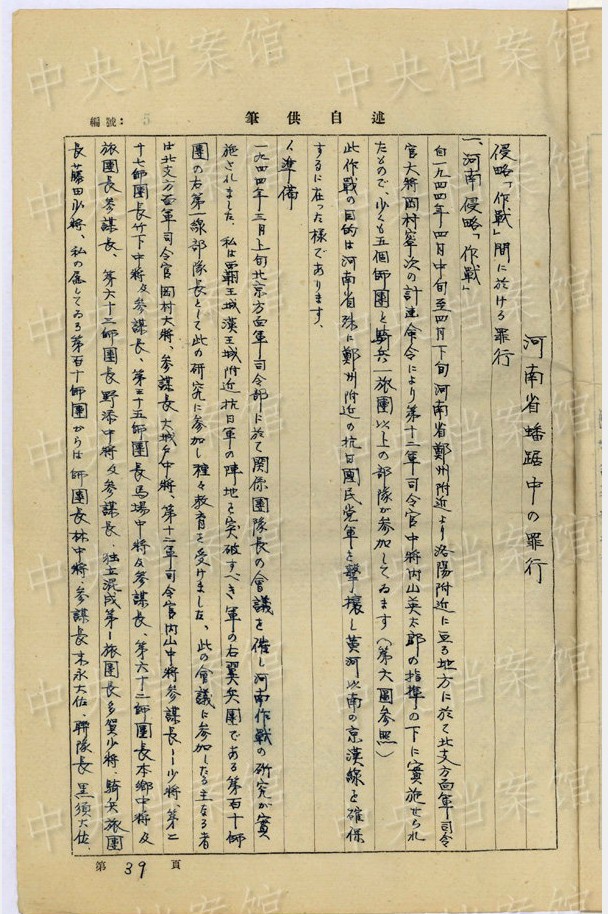 述自供筆
編號: 5
河南省蟠踞中の罪行
侵略「作戰」間に於ける罪行
一、河南侵略「作戰」
自一九四四年四月中旬至四月下旬河南省鄭州附近より洛陽附近に亘る地方に於て北支方面軍司令
官大將岡村寧次の計畫命令により第十二軍司令官中將內山英太郎の指揮の下に實施せられ
たもので、少くも五個師團と騎兵一旅團以上の部隊が參加してゐます（第六圖參照）
此作戰の目的は河南省殊に鄭州附近の抗日國民党軍を擊壞し黃河以南の京漢線を確保
するに在った樣であります、
１、準備
一九四四年三月上旬北京方面軍司令部に於て関係團隊長の會議を催し河南作戰の研究が實
施されました、私は霸王城漢王城附近抗日軍の陣地を突破すべき軍の右翼兵團である第百十師
團の右第一線部隊長として此の研究に參加し種々教育を受けました、此の會議に參加したる主なる者
は北支方面軍司令官岡村大將、參謀長大城戶中將、第十二軍司令官內山中將參謀長　　少將、第二
十七師團長竹下中將及參謀長、第三十五師團長馬場中將及參謀長、第六十二師團長本鄉中將及
旅團長參謀長、第六十三師團長野添中將及參謀長、独立混成第一旅團長多賀少將、騎兵旅團
長藤田少將、私の屬してゐる第百十師團からは師團長林中將、參謀長末永大佐聯隊長黑須大佐、
第39頁
中央档案馆
中央档案馆
中央档案馆
中央档案馆